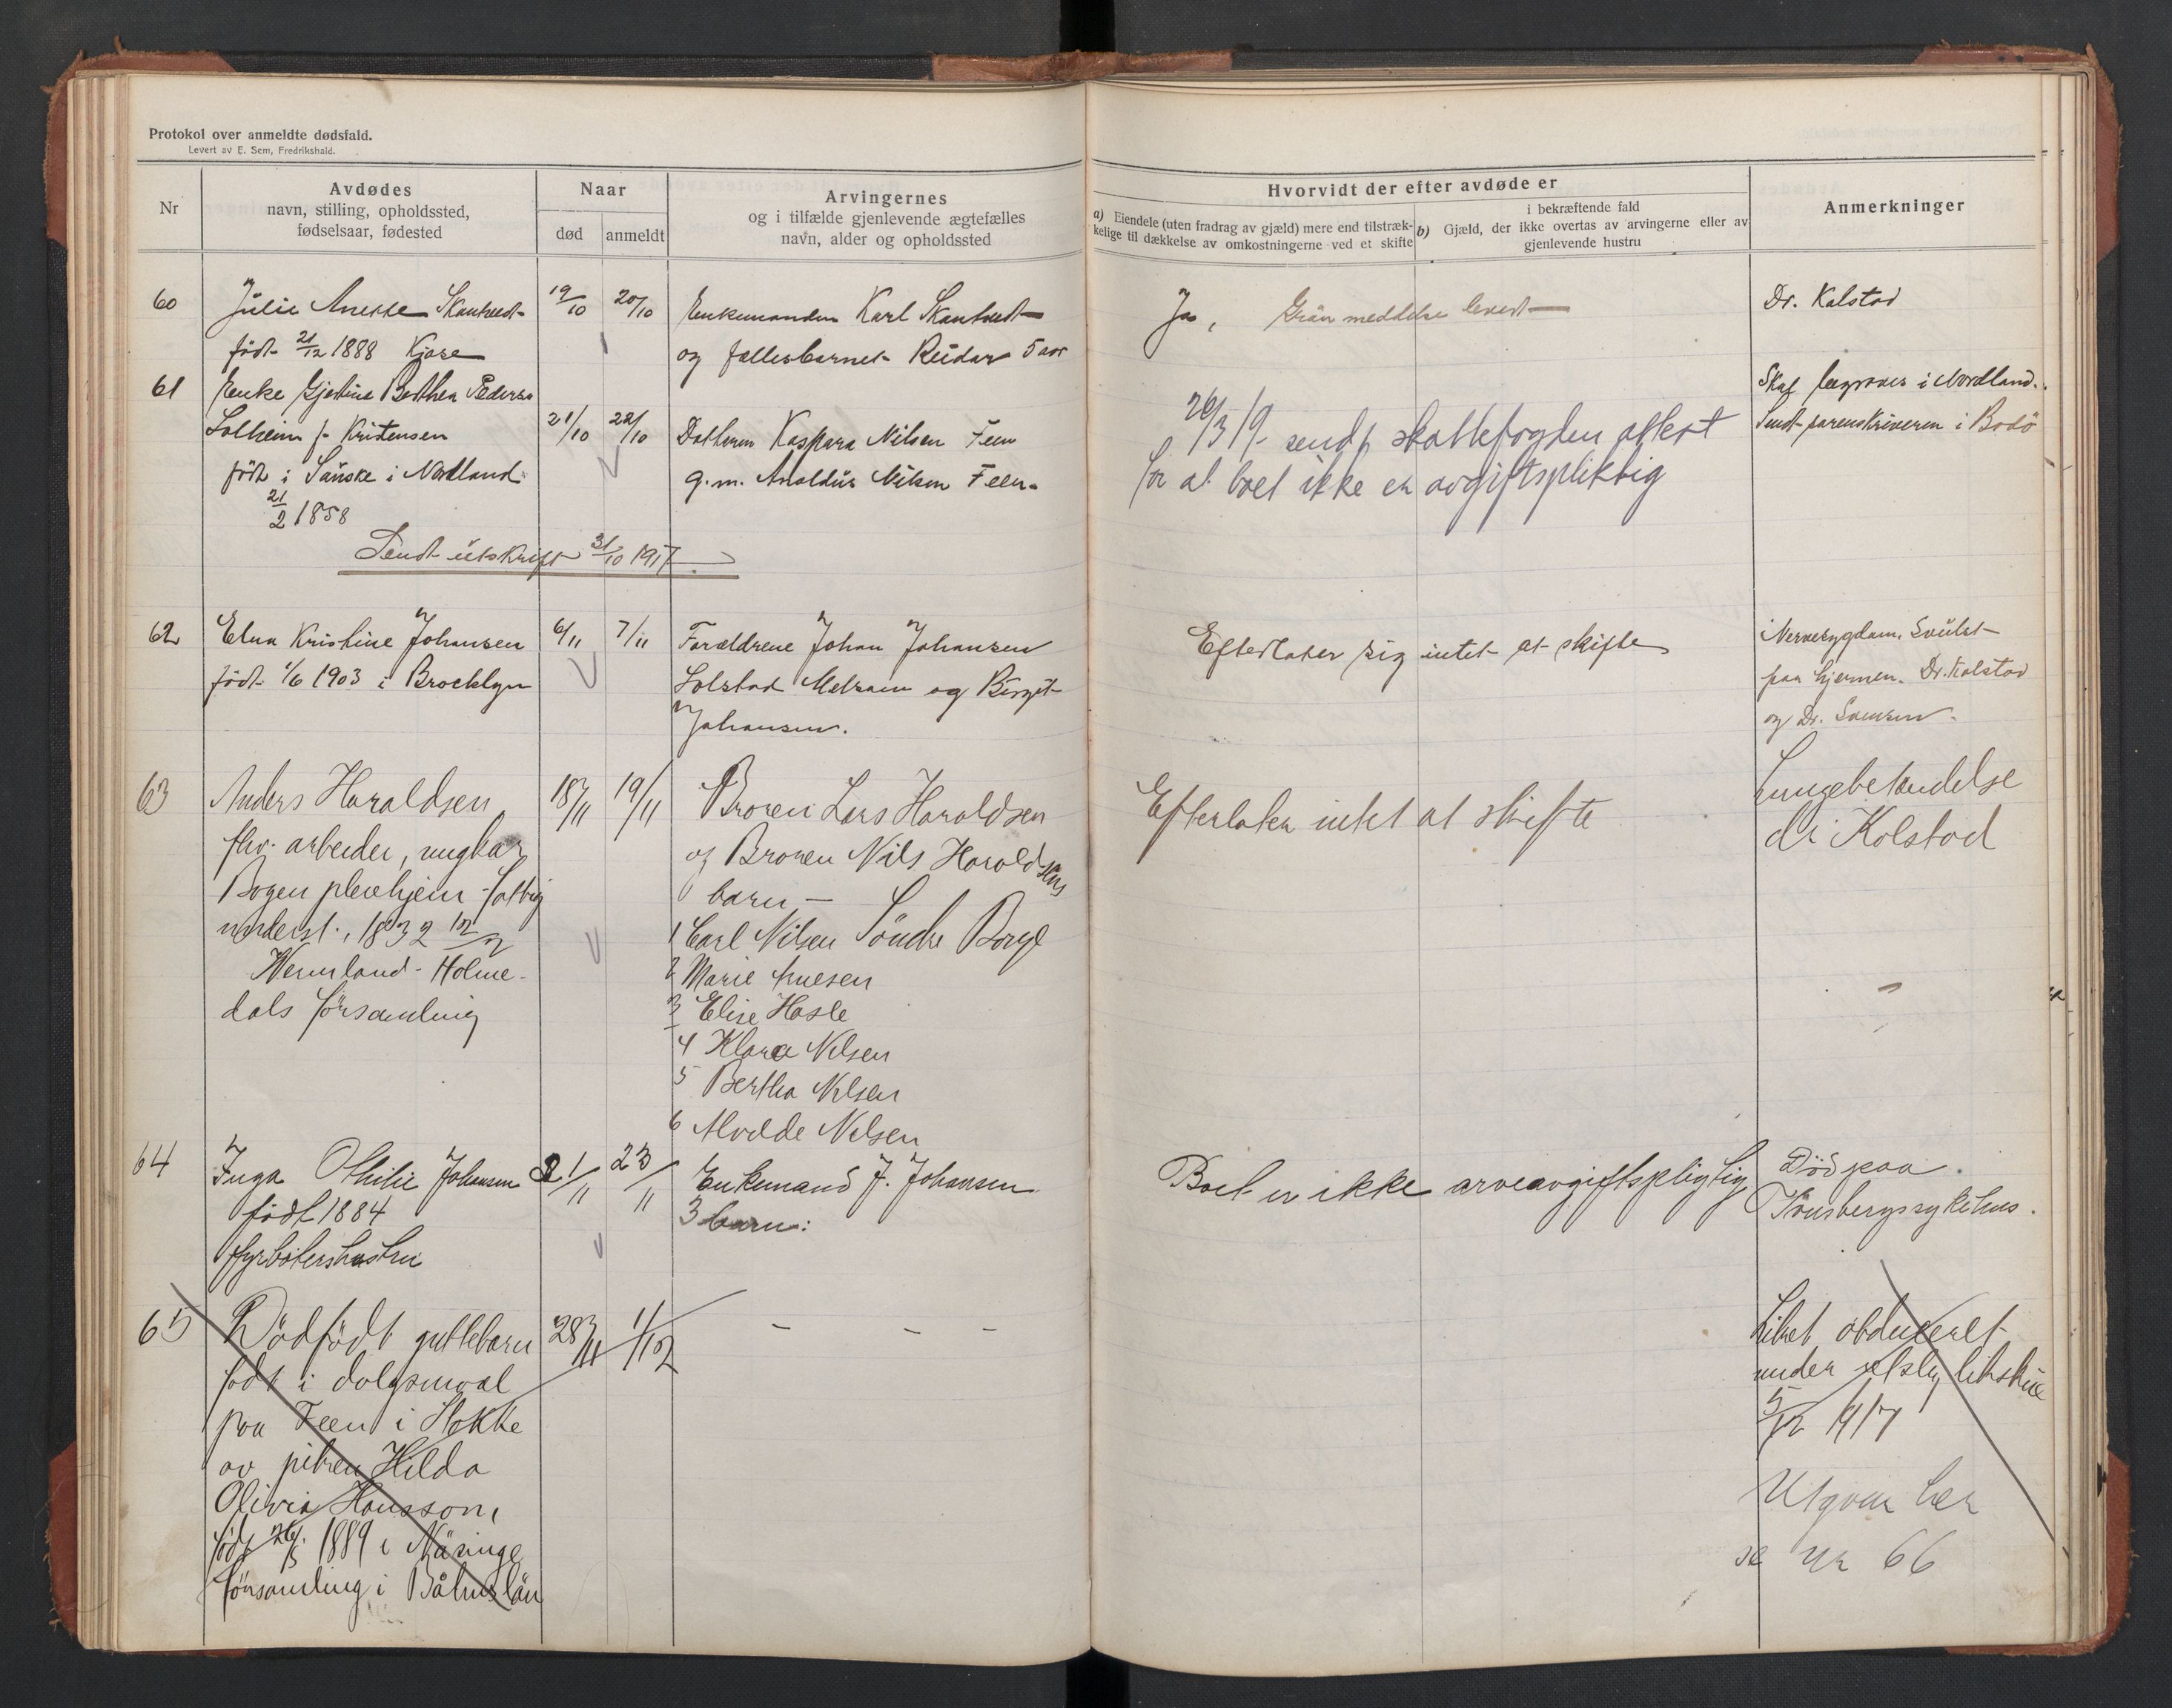 Protokol over anmeldte dødsfald.
Levert av E. Sem, Fredrikshald.
Nr
Avdødes
navn, stilling, opholdssted,
fødselsaar, fødested
Naar
død
anmeldt
Arvingernes
og i tilfælde gjenlevende ægtefælles
navn, alder og opholdssted
Hvorvidt der efter avdøde er
a) Eiendele (uten fradrag av gjæld) mere end tilstræk-
kelige til dækkelse av omkostningerne ved et skifte
i bekræftende fald
b) Gjæld, der ikke overtas av arvingerne eller av
gjenlevende hustru
Anmerkninger
60
Julie Anette
født 21/12 1888 Kjøse
19/10
20/10
Enkemanden Karl
og fællesbarnet Reidar 5 aar
Ja, meddelse levert
Dr. Kalstad
61
Enke Gjertine Berthea Pedersen
Solheim f. Kristensen
født i i Nordland
21/2 1858
21/10
22/10
Datteren Kaspara Nilsen Feen
g.m. Nilsen Feen.
26/3 19 sendt skattefogden attest
for at boet ikke er avgiftspliktig
Skal begraves i Nordland.
Sendt sorenskriveren i Bodö
Sendt utskrift 31/10 1917
62
Elna Kristine Johansen
født 1/6 1903 i Brocklyn
6/11
7/11
Forældrene Johan Johansen
Solstad Melsom og Birgit
Johansen.
Efterlater sig intet at skifte
Nervesygdom, Svulst
paa hjernen. Dr. Kalstad
og Dr.
63
Anders Haraldsen
fhv. arbeider, ungkar
Bogen pleiehjem
underst., 1832 12/2
Wermland - Holme-
dals församling
18/11
19/11
Broren Lars Haraldsen
og Broren Nils Haraldsens
barn -
1 Carl Nilsen Söndre Borge
2 Marie
3 Elise Hasle
4 Klara Nilsen
5 Bertha Nilsen
6 Alvilde Nilsen
Efterlater intet at skifte
Lungebetændelse
dr Kolstad
64
Inga Othilie Johansen
født 1884
fyrbøterhustru
21/11
23/11
Enkemand J. Johansen
3 barn:
Boet er ikke arveavgiftspligtig
Död paa
Tönsbergs sykehus.
65
Dödfödt guttebarn
født i dolgsmaal
paa Feen i Stokke
av piken Hilda
Olivia Hansson,
född 26/5 1889 i Näsinge
församling i Båhuslän
28/11
1/12
- - -
Liket obduceret
under retslig likskue
5/12 1917
Utgaar her
se nr 66